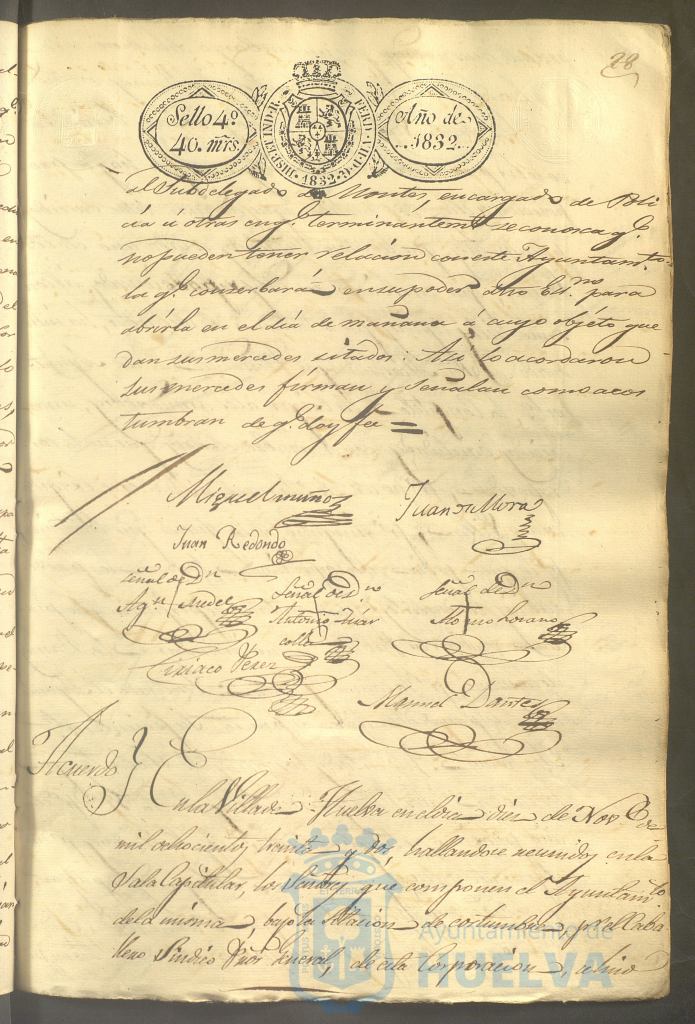 28
Sello 4º
40. mrs.
HISP. ET IND. R. FERD. VII. D. G. 1832
Año de
1832.
al Subdelegado de Montes, encargado de Poli
cía ú otras en qe. terminantemte. se conosca qe.
no pueden tener relación con este Ayuntamto.
la qe. conserbará en su poder dho Esno. para
abrirla en el día de mañana á cuyo objéto que
dan sus mercedes sitados: Asi lo acordaron
sus mercedes firman y señalan como acos
tumbran de qe. doy fee =
Miguel Muñoz
Juan de Mora
Juan Redondo
Señal de Dn
Agn. Medel
Señal de Dn
Antonio
Señal de Dn
Lozano
Ciriaco Perez
Manuel Dantes
Acuerdo
En la Villa de Huelva en el día diez de Nove. de
mil ochocientos treinta y dos, hallandose reunidos en la
Sala Capitular, los Señores que componen el Ayuntamto.
de la misma, bajo la sitacion de costumbre pr. el Caba
llero Sindico Pror. General, de esta Corporacion, asimo
Ayuntamiento de
HUELVA